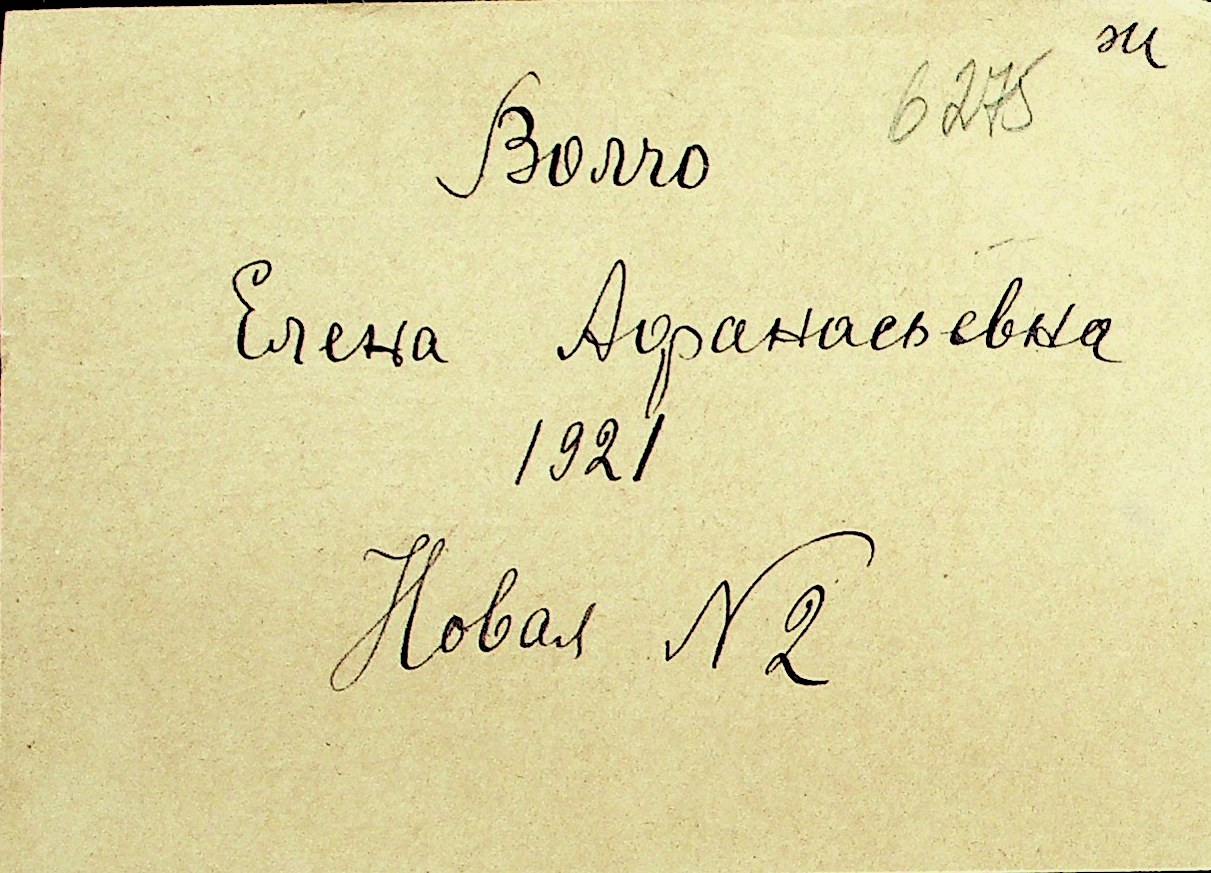 ж
6275
Волчо
Елена Афанасьевна
1921
Новая N2